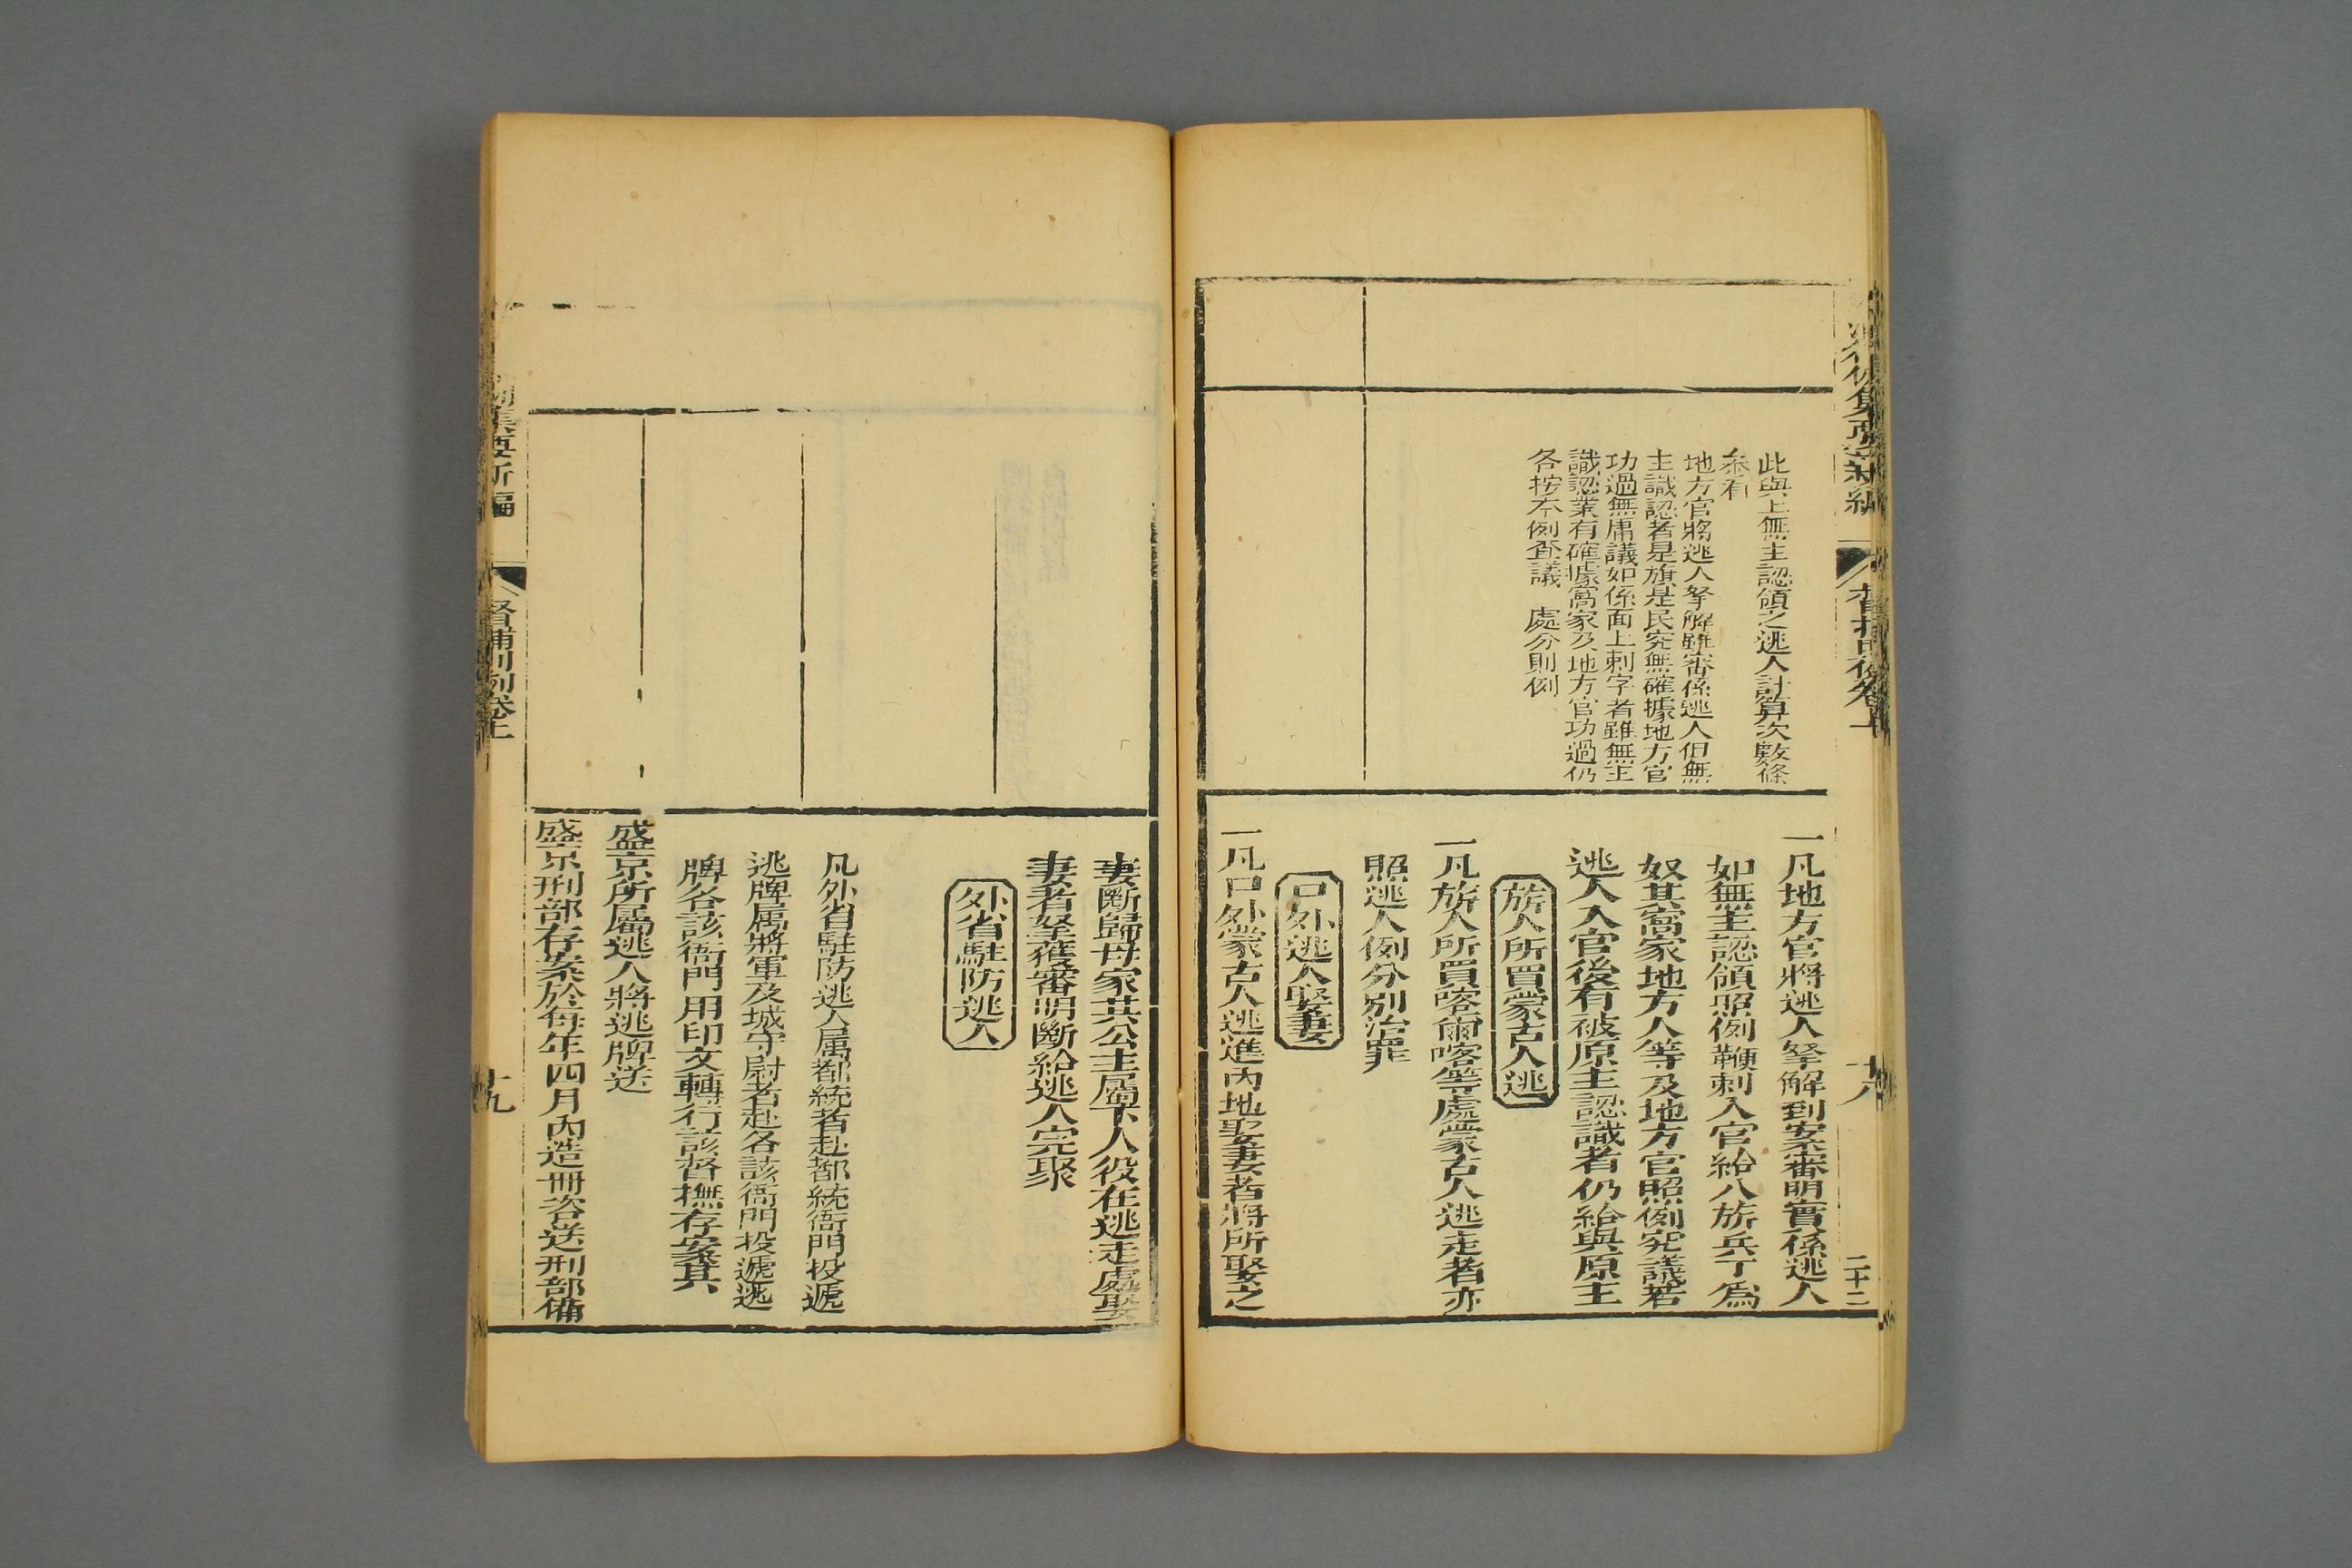 此與上無主認領之逃人計算次數條
叅看
地方官將逃人拏解雖審係逃人但無
主識認者是旗是民究無確據地方官
功過無庸議如係面上刺字者雖無主
識認業有確據窩家及地方官功過仍
各按本例查議 處分則例
一凡地方官將逃人拏解到案審明實係逃人
如無主認領照例鞭刺入官給八旂兵丁爲
奴其窩家地方人等及地方官照例究議若
逃人入官後有被原主認識者仍給與原主
旂人所買蒙古人逃
一凡旂人所買喀爾喀等處蒙古人逃走者亦
照逃人例分別治罪
口外逃人娶妻
一凡口外蒙古人逃進內地娶妻者將所娶之
十八
二十二
妻斷歸母家其公主屬下人役在逃走處娶
妻者拏獲審明斷給逃人完聚
外省駐防逃人
凡外省駐防逃人屬都統者赴都統衙門投遞
逃牌屬將軍及城守尉者赴各該衙門投遞逃
牌各該衙門用印文轉行該督撫存案其
盛京所屬逃人將逃牌送
盛京刑部存案於每年四月內造冊咨送刑部備
集要新編
督捕則例卷上
十九